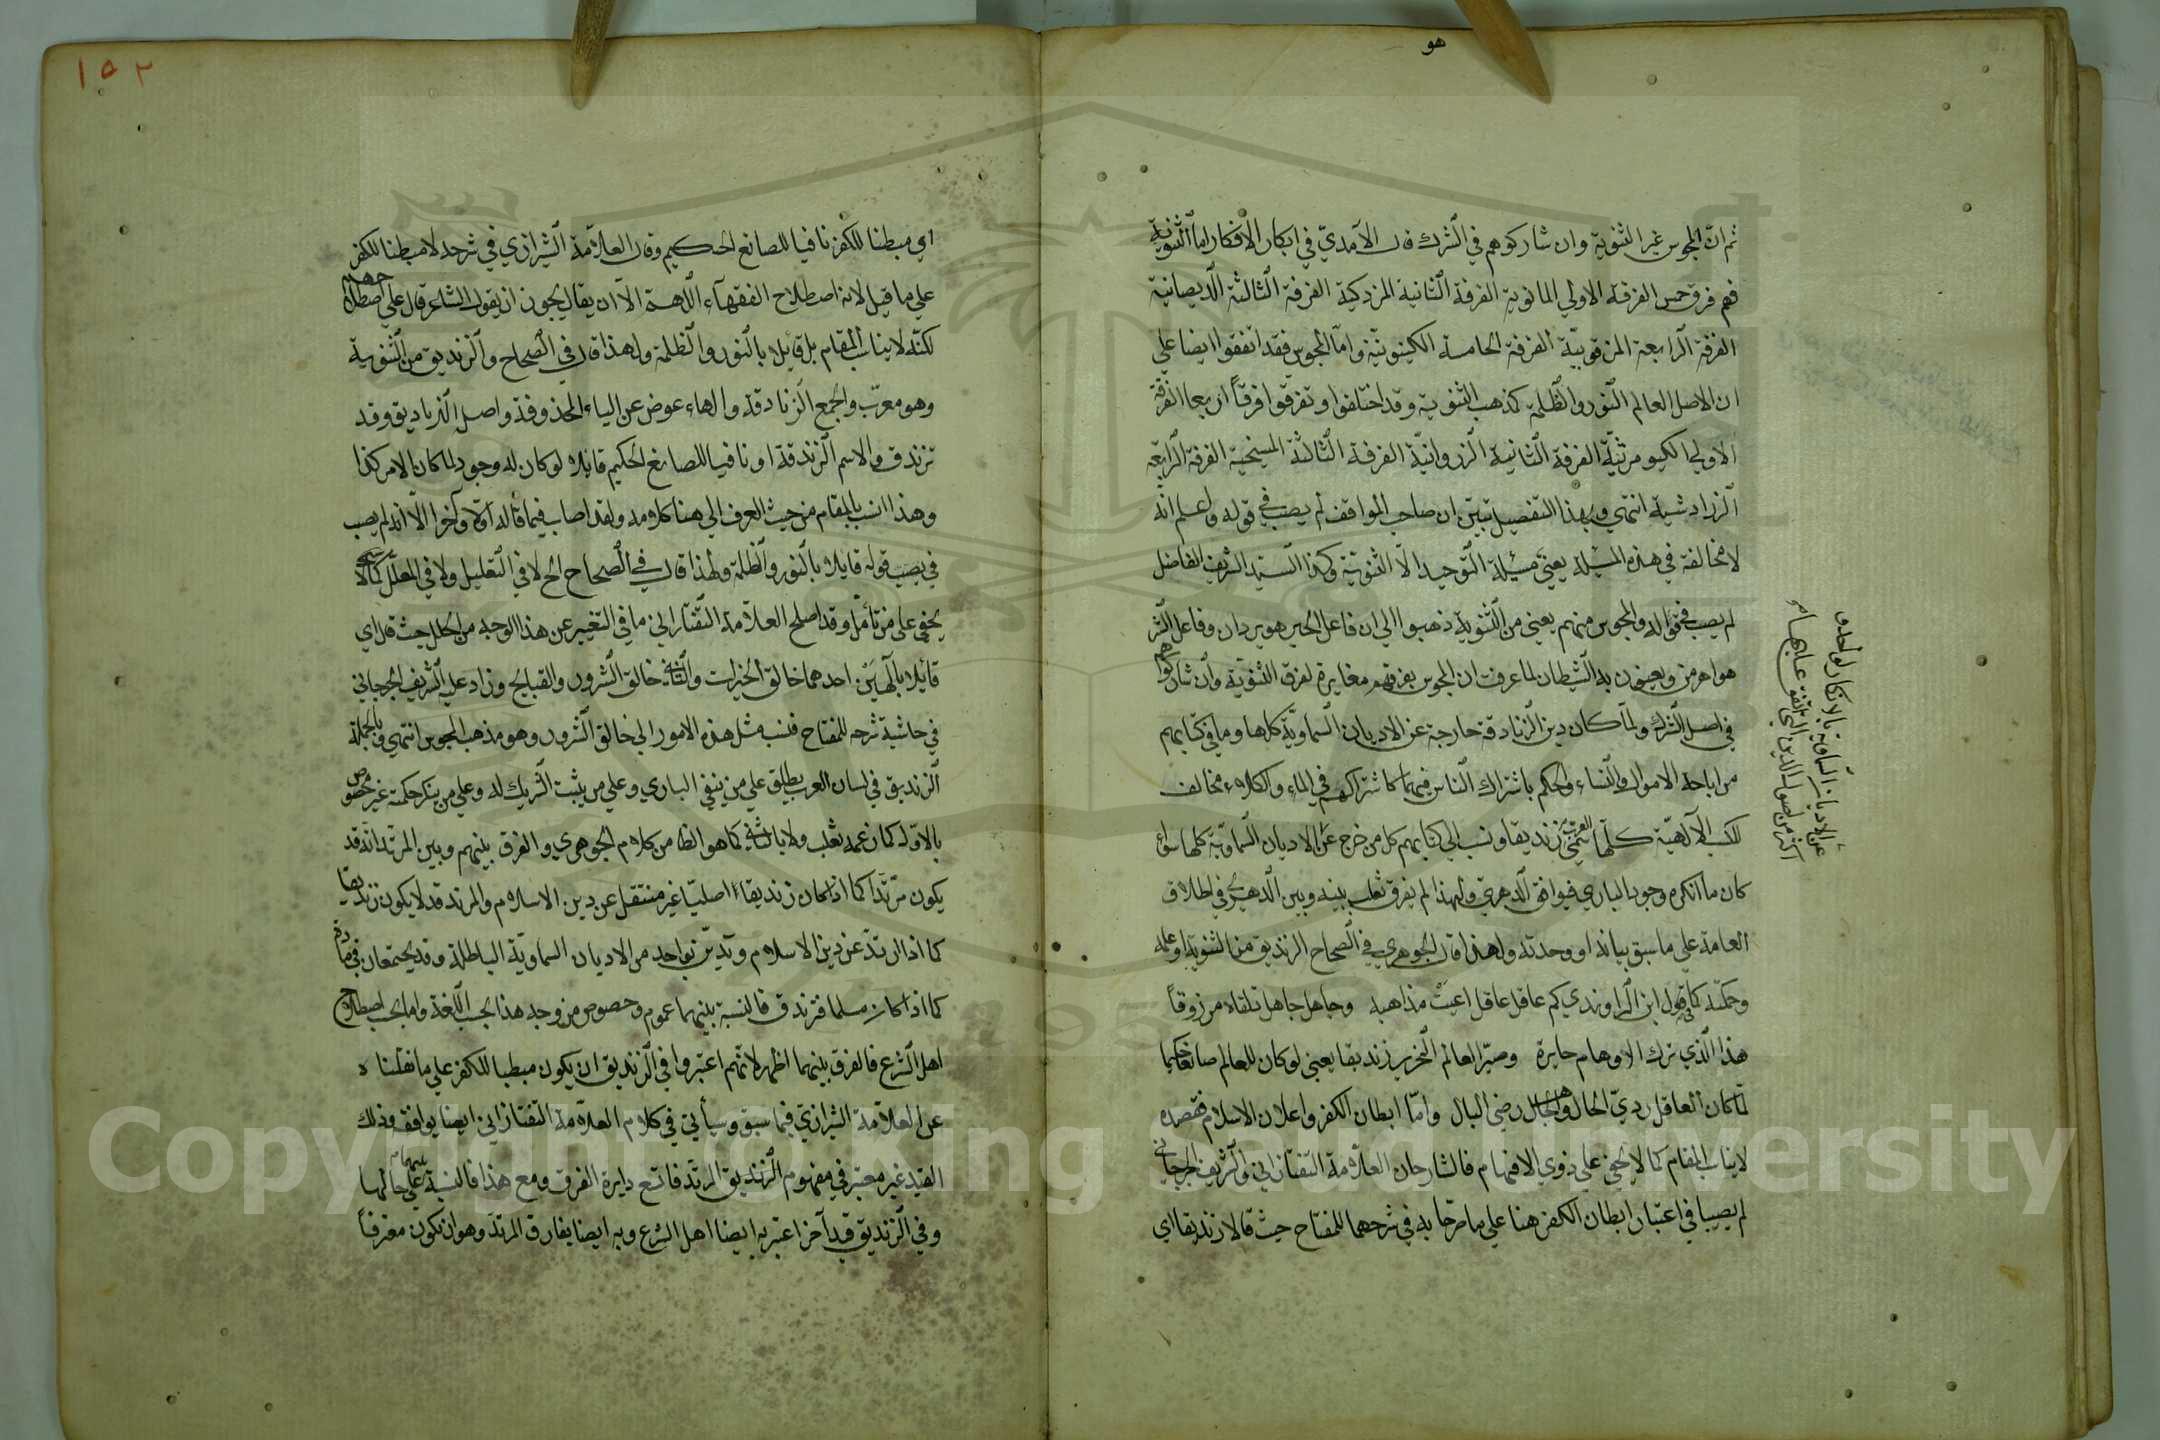 هو
ثم ان المجوس غير الثنوية وان شاركوهم في الشرك قال الآمدي في ابكار الافكار اما الثنوية
فهم فرق خمس الفرقة الاولى المانوية الفرقة الثانية المزدكية الفرقة الثالثة الديصانية
الفرقة الرابعة المرقوبية الفرقة الخامسة الكينونية واما المجوس فقد اتفقوا ايضا على
ان الاصل العالم النور والظلمة كمذهب الثنوية وقد اختلفوا وتفرقوا فرقا اربعا الفرقة
الاولى الكيومرثية الفرقة الثانية الزروانية الفرقة الثالثة المسيخية الفرقة الرابعة
الزرادشتية انتهى وبهذا التفصيل تبين ان صاحب المواقف لم يصب في قوله واعلم انه
لا مخالفة في هذه المسئلة يعني مسئلة التوحيد الا الثنوية وكذا السيد الشريف الفاضل
لم يصب في قوله والمجوس منهم يعني من الثنوية ذهبوا الى ان فاعل الخير هو يزدان وفاعل الشر
هو اهرمن ويعنون به الشيطان لما عرفت ان المجوس بفرقهم مغايرة لفرق الثنوية وان شاركوا
في اصل الشرك ولما كان دين الزنادقة خارجة عن الاديان السماوية كلها وما في كتابهم
من اباحة الاموال والنساء والحكم باشتراك الناس فيهما كاشتراكهم في الماء والكلاء مخالف
للكتب الالهية كلها سمى العرب زنديقا ونسب الى كتابهم كل من خرج عن الاديان السماوية كلها سواء
كان ما انكره وجود الباري فيوافق الدهري ولهذا لم يفرق ثعلب بينه وبين الدهري في اطلاق
العامة على ما سبق بيانه او وحدته ولهذا قال الجوهري في الصحاح الزنديق من الثنوية او علمه
وحكمته كما في قول ابن الراوندي كم عاقل عاقل اعيت مذاهبه وجاهل جاهل تلقاه مرزوقا
هذا الذي ترك الاوهام حايرة وصير العالم النحرير زنديقا يعني لو كان للعالم صانعا حكيما
لما كان العاقل ردي الحال والجاهل رضي البال واما ابطان الكفر واعلان الاسلام فقصده
لا يناسب المقام كما لا يخفى على ذوي الافهام فالشارحان العلامة التفتازاني والشريف الجرجاني
لم يصيبا في اعتبار ابطان الكفر هنا على ما صرحا به في شرحهما للمفتاح حيث قالا زنديقا اي
عن الاديان السماوية بالانكار لواحد من
اكثر من اصول الدين التي اتفق عليها
١٥٢
اي مبطنا للكفر نافيا للصانع الحكيم وقال العلامة الشيرازي في شرحه لا مبطنا للكفر
على ما قيل لانه اصطلاح الفقهاء اللهم الا ان يقال يجوز ان يقول الشاعر قال على اصطلاحهم
لكنه لا يناسب المقام بل قائلا بالنور والظلمة ولهذا قال في الصحاح والزنديق من الثنوية
وهو معرب والجمع الزنادقة والهاء عوض عن الياء المحذوفة واصله الزناديق وقد
تزندق والاسم الزندقة او نافيا للصانع الحكيم قائلا لو كان له وجود لما كان الامر كذا
وهذا انسب بالمقام من حيث العرف الى هنا كلامه ولقد اصاب فيما قاله اولا وآخرا الا انه لم يصب
في نصب قوله قايلا بالنور والظلمة ولهذا قال في الصحاح الخ لا في التعليل ولا في المعلل كما لا
يخفى على من تأمل وقد اصلح العلامة التفتازاني ما في التغيير عن هذا الوجه من الخلل حيث قال اي
قائلا بالهين احدهما خالق الخيرات والثاني خالق الشرور والقبايح وزاد عليه الشريف الجرجاني
في حاشية شرحه للمفتاح فنسب مثل هذه الامور الى خالق الشرور وهو مذهب المجوس انتهى وبالجملة
الزنديق في لسان العرب يطلق على من ينفي الباري وعلى من يثبت الشريك له وعلى من ينكر حكمته غير مخصوص
بالاول كما زعمه ثعلب ولا بالثاني كما هو الظاهر من كلام الجوهري والفرق بينهم وبين المرتد انه قد
يكون مرتدا كما اذا كان زنديقا اصليا غير منتقل عن دين الاسلام والمرتد قد لا يكون زنديقا
كما اذا ارتد عن دين الاسلام وتدين بواحد من الاديان السماوية الباطلة وقد يجتمعان في مادة
كما اذا كان مسلما فتزندق فالنسبة بينهما عموم وخصوص من وجه هذا بحسب اللغة واما بحسب اصطلاح
اهل الشرع فالفرق بينهما اظهر لانهم اعتبروا في الزنديق ان يكون مبطنا للكفر على ما نقلناه
عن العلامة الشيرازي فيما سبق وسيأتي في كلام العلامة التفتازاني ايضا يوافقه وذلك
القيد غير معتبر في مفهوم الزنديق المرتد فاتسع دايرة الفرق ومع هذا فالنسبة بينهما على حالها
وفي الزنديق قيد آخر اعتبر به ايضا اهل الشرع وبه ايضا يفارق المرتد وهو ان يكون معترفا
Copyright © King Saud University